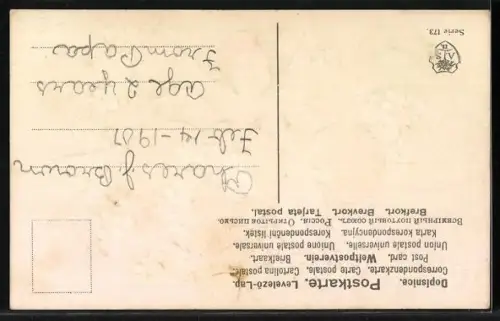 Dopisnice. Postkarte, Levelező-Lap.
Correspondenzkarte. Carte postale. Cartolina postale.
Post card. Weltpostverein. Briefkaart.
Union postale universelle. Unione postale universale.
Karta korespondencyjna. Korespondenční listek.
Всемірный почтовый союзъ. Россія. Открытое письмо.
Brefkort. Brevkort. Tarjeta postal.
Chares J Brown
Feb-14-1907
Age 2 years
From Papa
Serie 173.